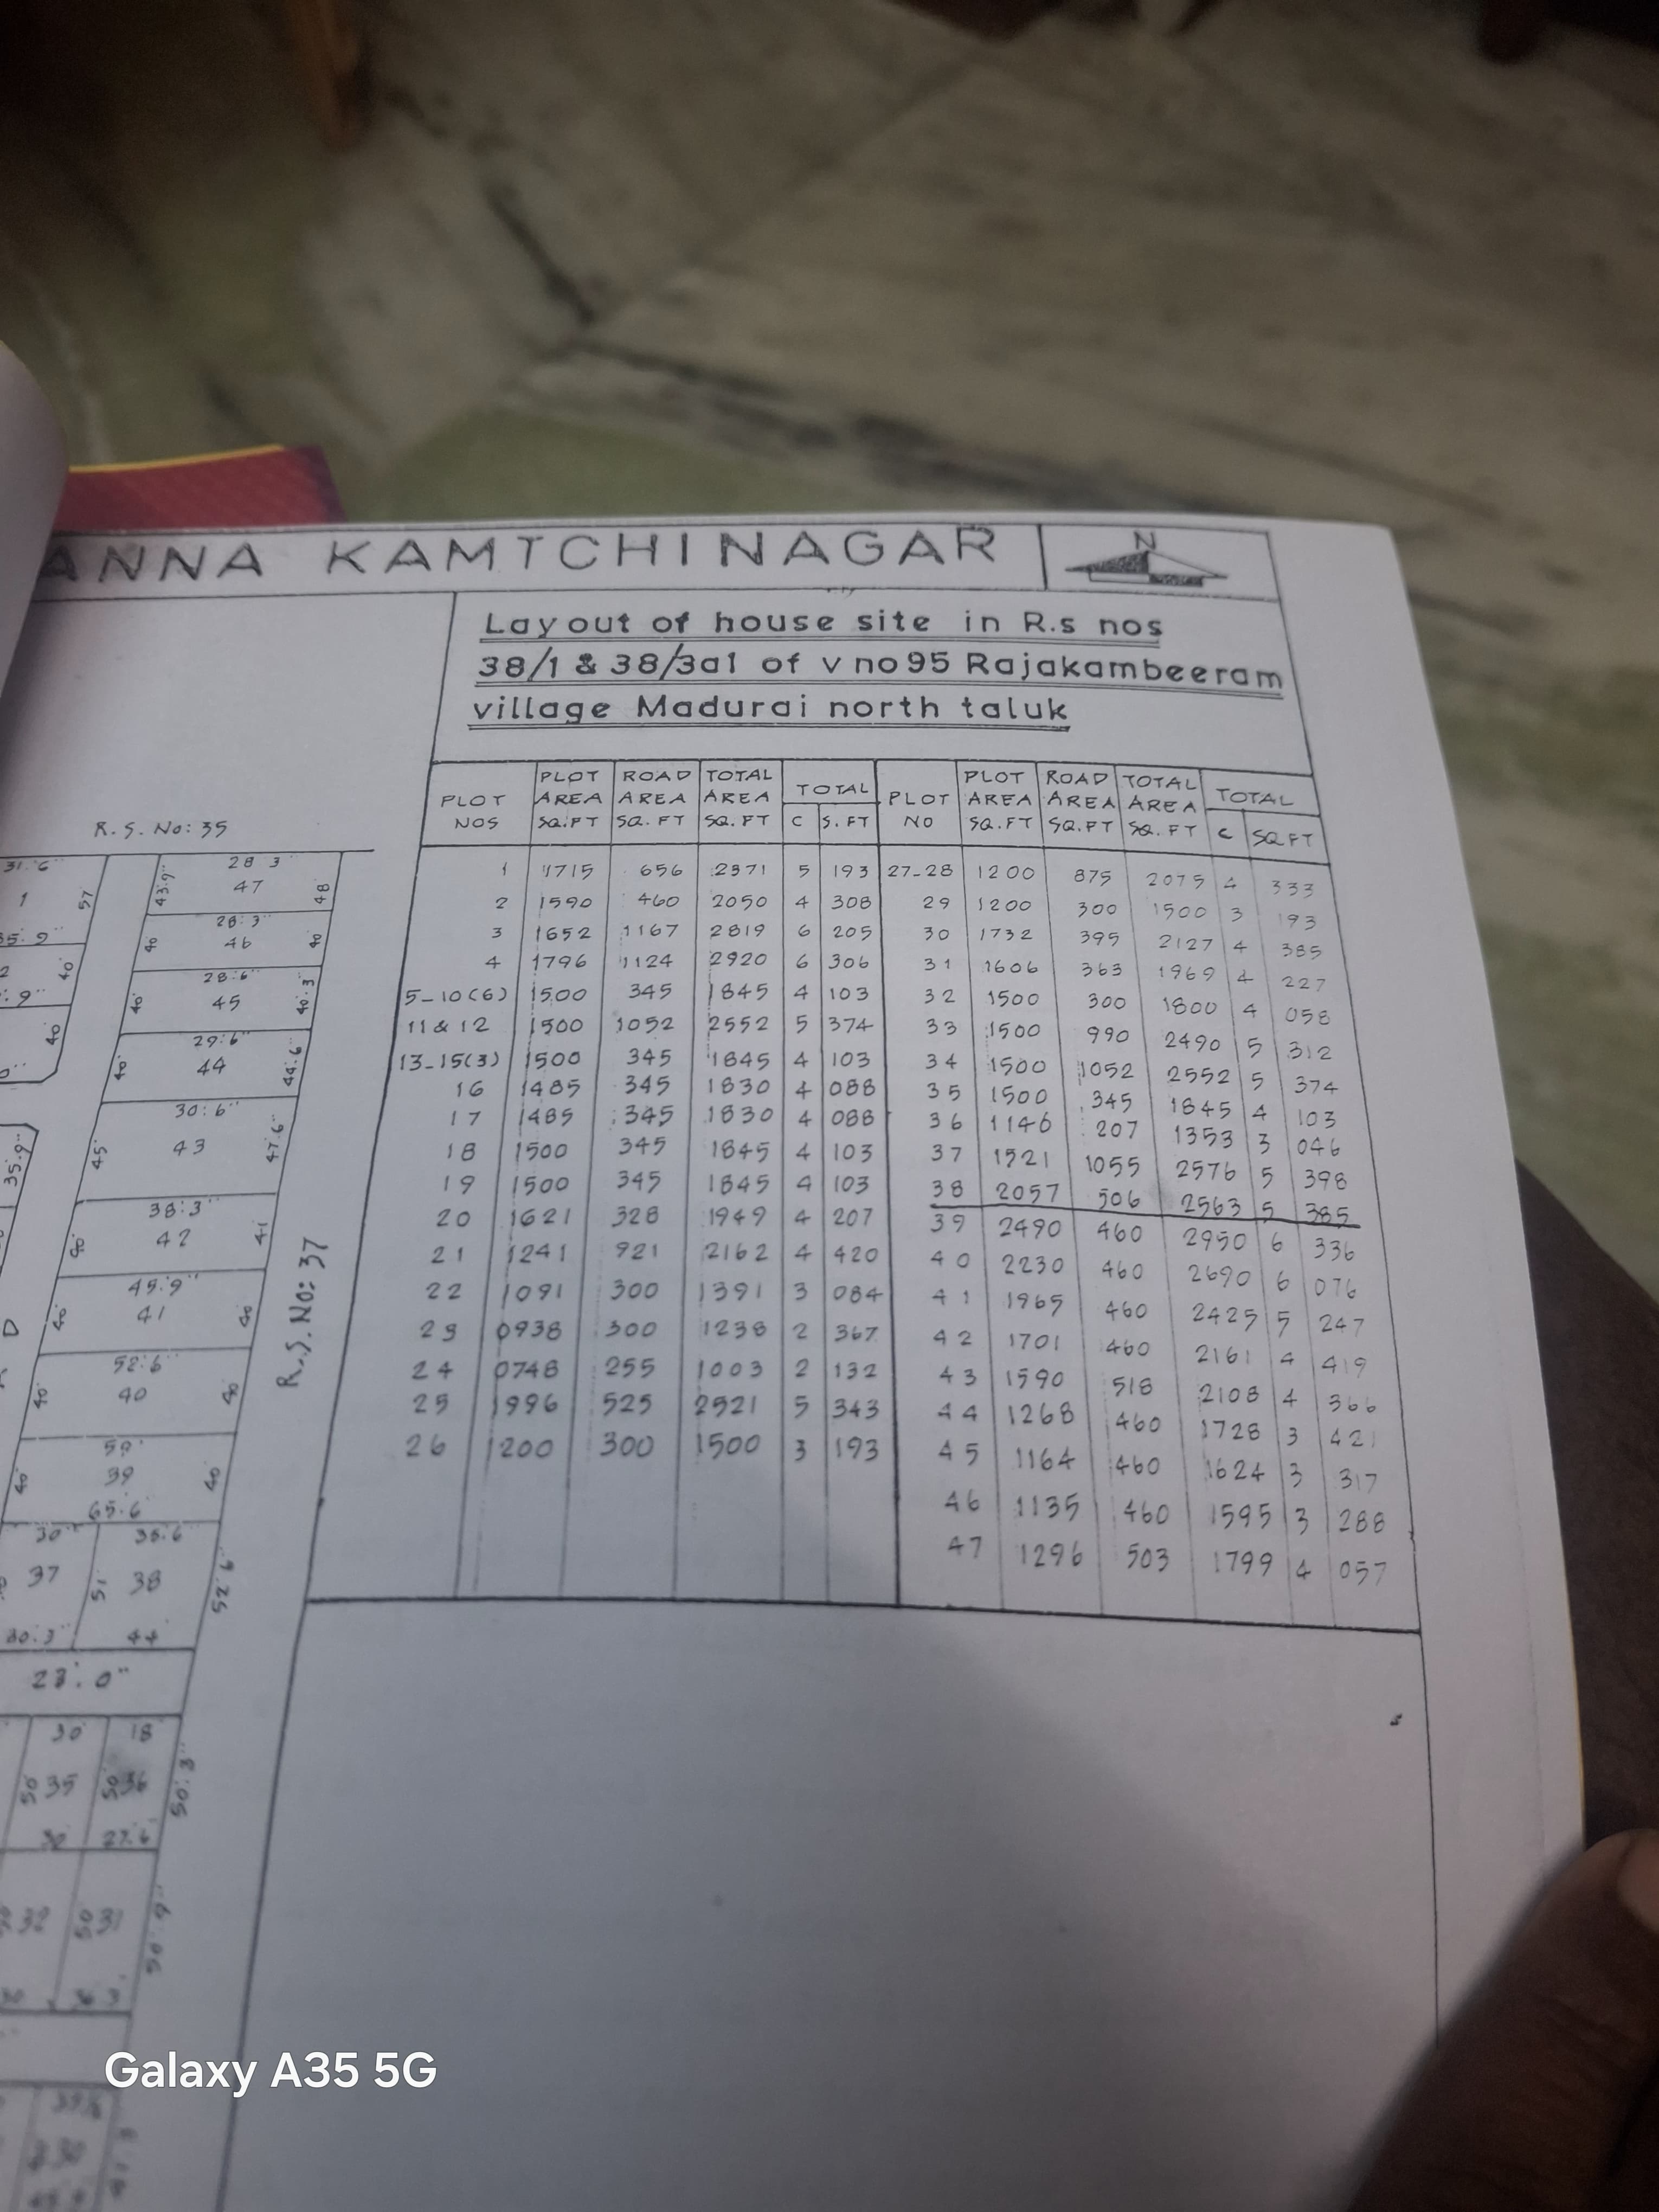 ANNA KAMTCHINAGAR
N
Layout of house site in R.s nos
38/1 & 38/3a1 of v no 95 Rajakambeeram
village Madurai north taluk
PLOT NOS PLOT AREA SQ.FT ROAD AREA SQ.FT TOTAL AREA SQ.FT TOTAL C S.FT PLOT NO PLOT AREA SQ.FT ROAD AREA SQ.FT TOTAL AREA SQ.FT TOTAL C SQFT
1 1715 656 2371 5 193 27-28 1200 875 2075 4 333
2 1590 460 2050 4 308 29 1200 300 1500 3 193
3 1652 1167 2819 6 205 30 1732 395 2127 4 385
4 1796 1124 2920 6 306 31 1606 363 1969 4 227
5-10(6) 1500 345 1845 4 103 32 1500 300 1800 4 058
11 & 12 1500 1052 2552 5 374 33 1500 990 2490 5 312
13-15(3) 1500 345 1845 4 103 34 1500 1052 2552 5 374
16 1485 345 1830 4 088 35 1500 345 1845 4 103
17 1485 345 1830 4 088 36 1146 207 1353 3 046
18 1500 345 1845 4 103 37 1521 1055 2576 5 398
19 1500 345 1845 4 103 38 2057 506 2563 5 385
20 1621 328 1949 4 207 39 2490 460 2950 6 336
21 1241 921 2162 4 420 40 2230 460 2690 6 076
22 1091 300 1391 3 084 41 1965 460 2425 5 247
23 0938 300 1238 2 367 42 1701 460 2161 4 419
24 0748 255 1003 2 132 43 1590 518 2108 4 366
25 1996 525 2521 5 343 44 1268 460 1728 3 421
26 1200 300 1500 3 193 45 1164 460 1624 3 317
46 1135 460 1595 3 288
47 1296 503 1799 4 057
R.S. No: 35
31'.6" 28'.3"
1 57 43'.9" 47 48
35'.9" 28'.3"
40 40 46 40
28'.6"
40 45 40'.3
29'.6"
40 44 44'.6"
30'.6"
35'.9" 45' 43 47'.6"
38'.3"
40 42 41
R.S. No: 37
45'.9"
40 41 40
52'.6"
40 40 40
59'
40 39 40
65'.6
30' 38'.6
37 51 38 52'6"
30'.3" 44
23'.0"
30' 18
50' 35 50 36 50'.3"
30' 27'.6
32 50 31 50'.9"
30 36'3
Galaxy A35 5G